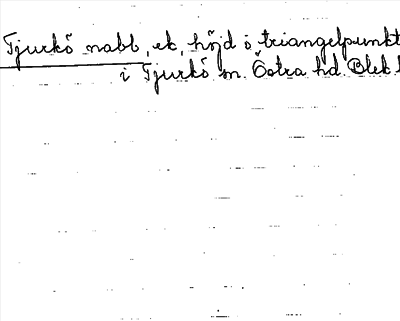 Tjurkö nabb, ek, höjd o triangelpunkt
i Tjurkö sn. Östra hd. Blek.